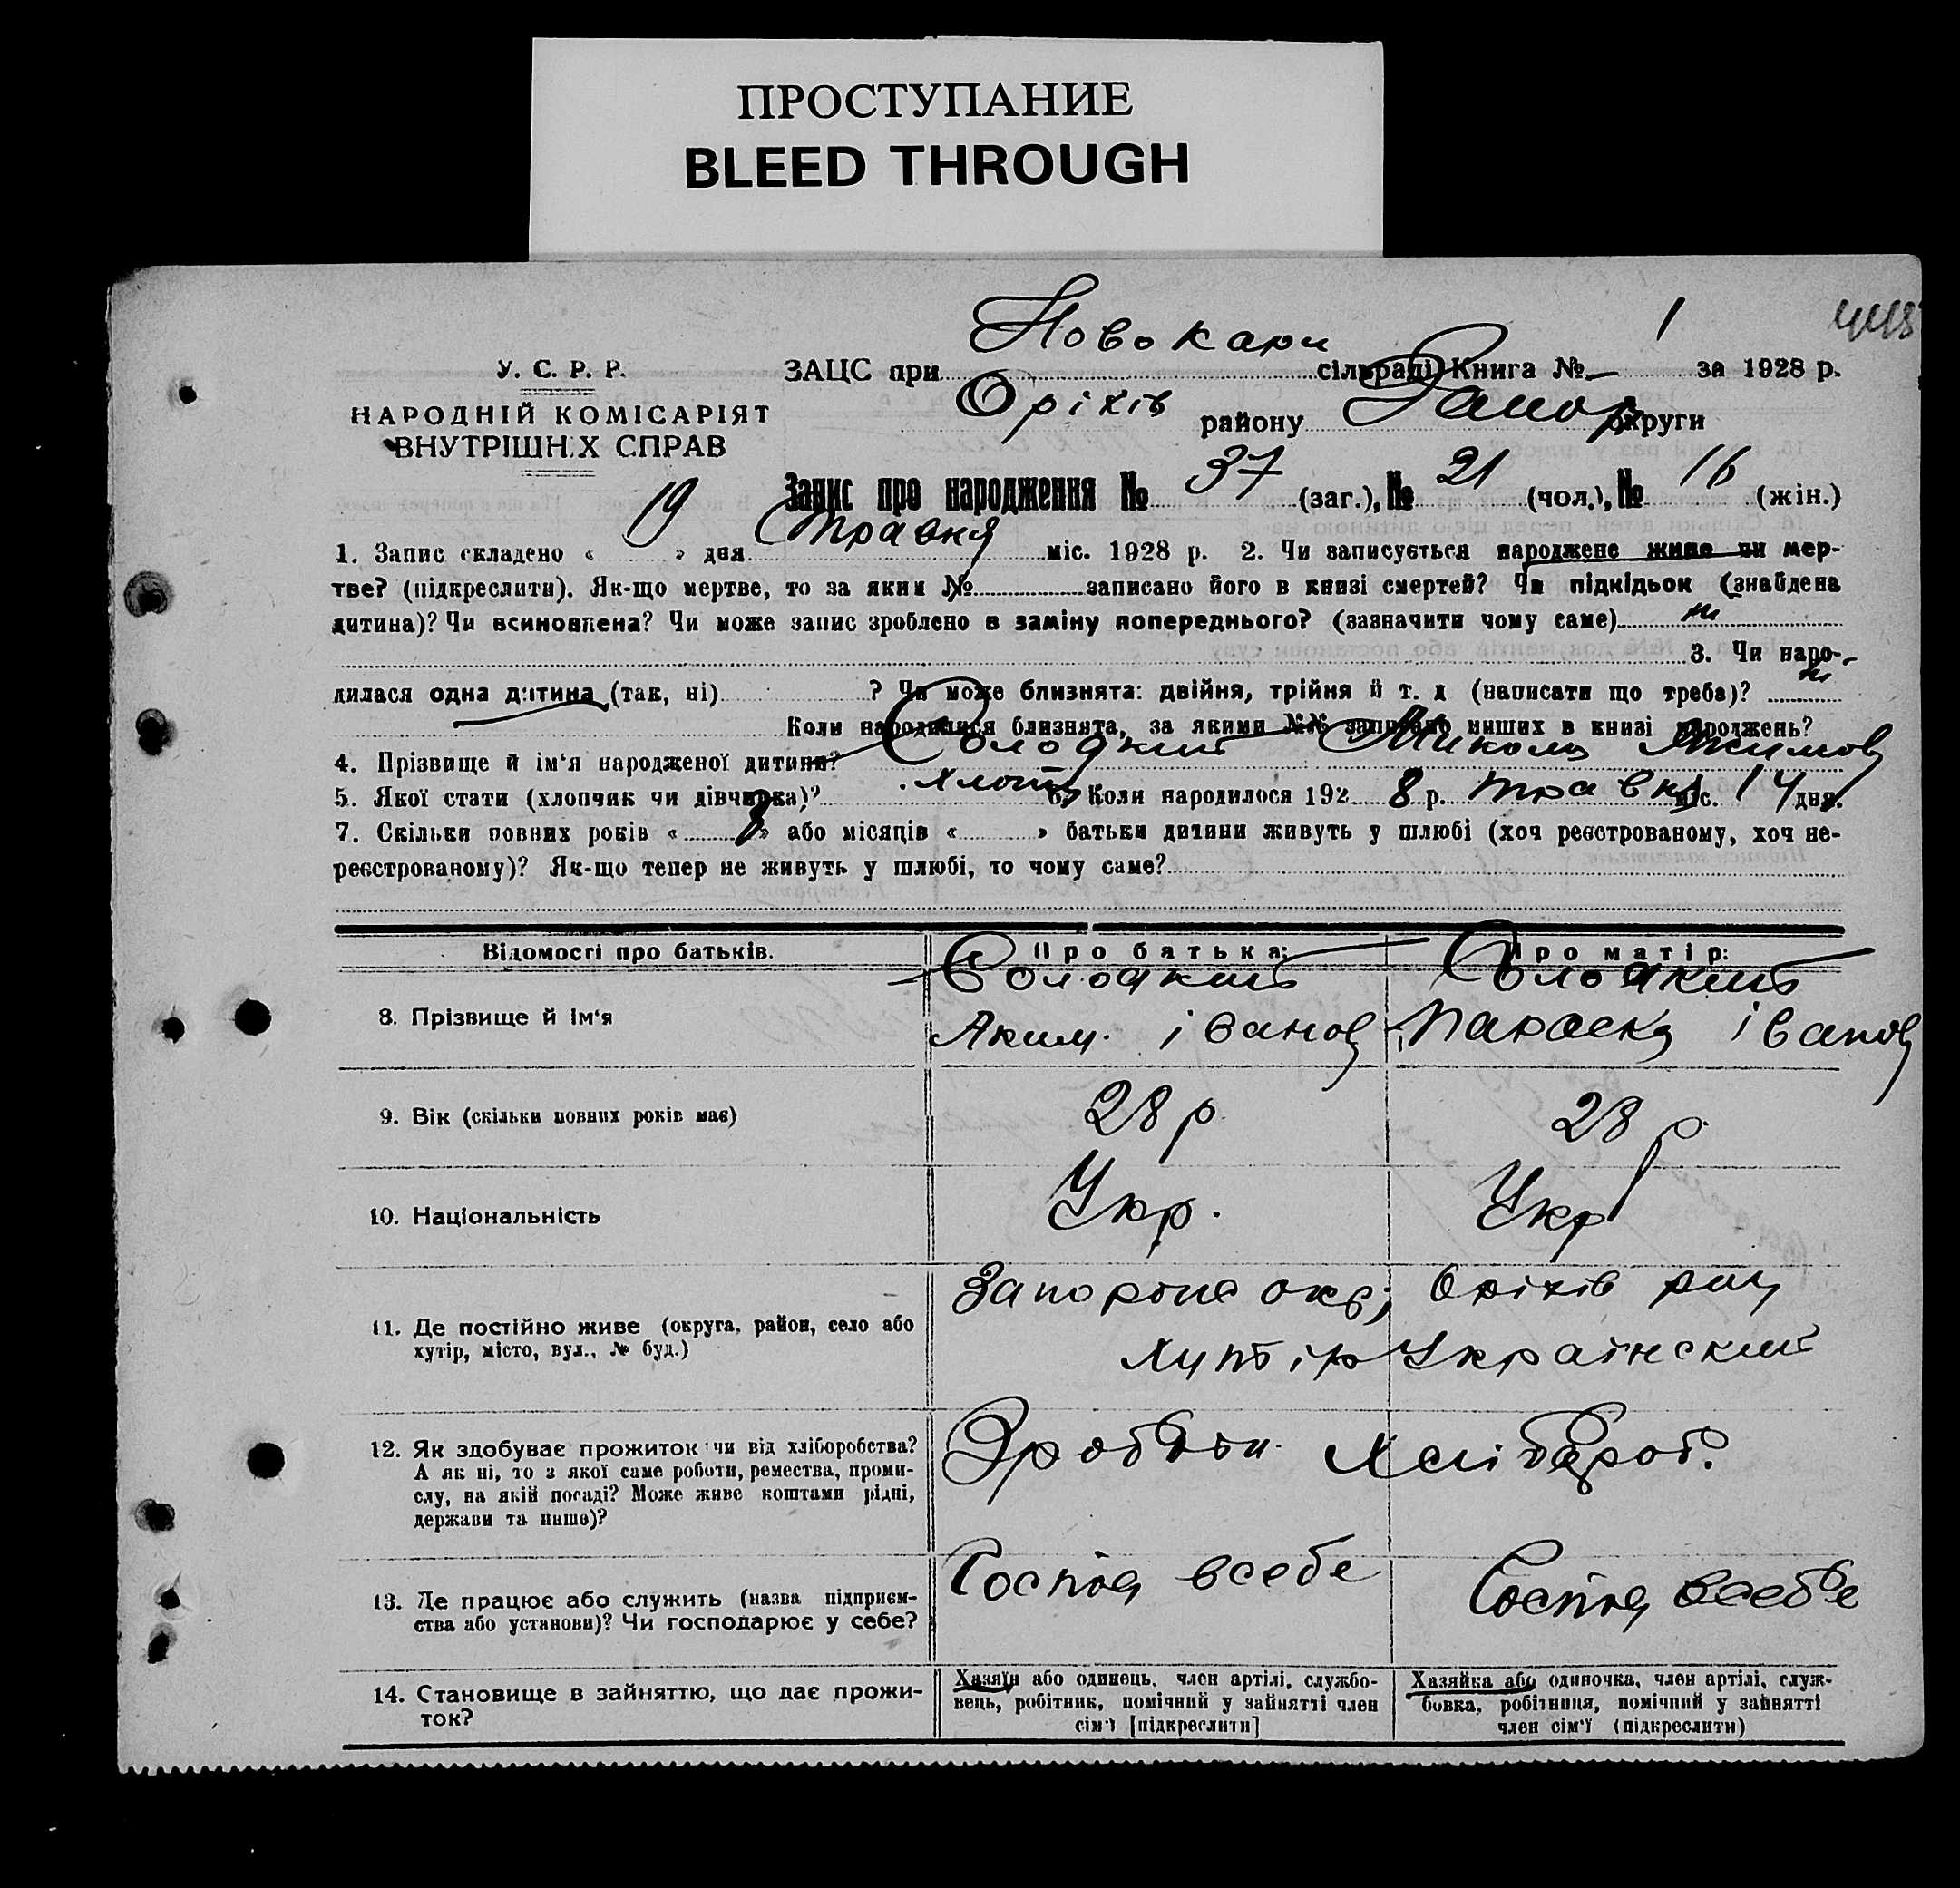 ПРОСТУПАНИЕ
BLEED THROUGH
Новокари 1
У. С. Р. Р. ЗАЦС при сільраді Книга № за 1928 р.
НАРОДНІЙ КОМІСАРІЯТ Оріхів району Запор округи
ВНУТРІШНІХ СПРАВ
Запис про народження № 37 (заг.), № 21 (чол.), № 16 (жін.)
1. Запис складено « 19 » дня травня міс. 1928 р. 2. Чи записується народжене живе чи мер-
тве? (підкреслити). Як-що мертве, то за яким № записано його в книзі смертей? Чи підкідьок (знайдена
дитина)? Чи всиновлена? Чи може запис зроблено в заміну попереднього? (зазначити чому саме) ні
3. Чи наро-
дилася одна дитина (так, ні) ? Чи може близнята: двійня, трійня й т. д (написати що треба)? ні
Коли народилися близнята, за якими №№ записано инших в книзі народжень?
4. Прізвище й ім'я народженої дитини? Солодкий Микола Якимов
5. Якої стати (хлопчик чи дівчинка)? хлоп 6. Коли народилося 192 8 р. травня міс. 14 дня.
7. Скільки повних років « » або місяців « » батьки дитини живуть у шлюбі (хоч реєстрованому, хоч не-
реєстрованому)? Як-що тепер не живуть у шлюбі, то чому саме?
Відомості про батьків. Про батька: Про матір:
8. Прізвище й ім'я Солодкий Солодкий
Аким. іванов Параска іванов
9. Вік (скільки повних років має) 28 р. 28 р.
10. Національність Укр. Укр
11. Де постійно живе (округа, район, село або Запоріне окр; Оріхів рай
хутір, місто, вул., № буд.) Хутір Украінский
12. Як здобуває прожиток чи від хліборобства? Хлібороб.
А як ні, то з якої саме роботи, ремества, проми-
слу, на якій посаді? Може живе коштами рідні,
держави та инше)?
13. Де працює або служить (назва підприєм- Господ всебе Господ всебе
ства або установи)? Чи господарює у себе?
14. Становище в зайняттю, що дає прожи-
ток?
Хазяїн або одинець, член артілі, службо-
вець, робітник, помічний у зайнятті член
сім'ї [підкреслити]
Хазяйка або одиночка, член артілі, служ-
бовка, робітниця, помічний у зайнятті
член сім'ї (підкреслити)